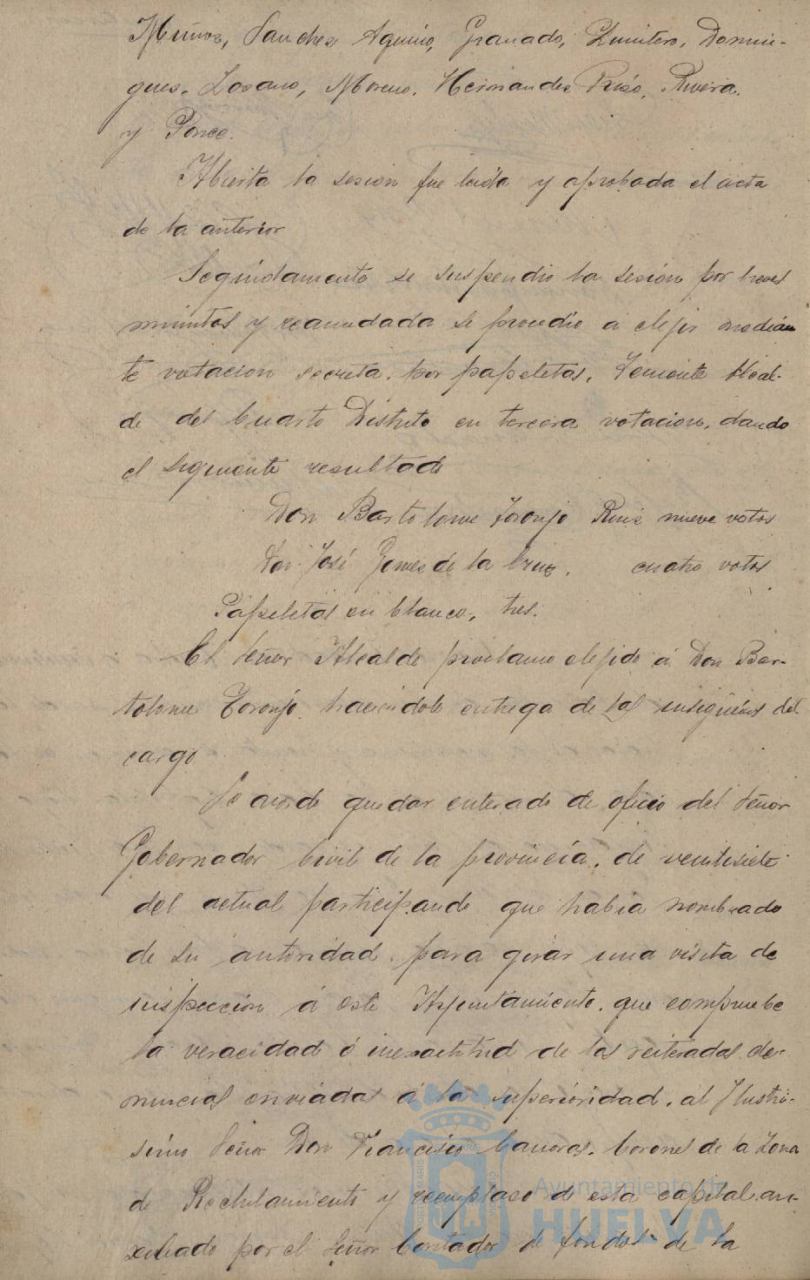 Muñoz, Sanchez Aquino, Granado, Quintero, Domin-
gues, Lozano, Moreno, Hernandez Rivera
y Ponce.
Abierta la sesion fue leida y aprobada el acta
de la anterior
Seguidamente se suspendio la sesion por breves
minutos y reanudada se procedio a elejir median
te votacion secreta, por papeletas, Teniente Alcal-
de del Cuarto Distrito en tercera votacion, dando
el siguiente resultado
Don Bartolome Toronjo Ruiz nueve votos
Don José Gomez de la Cruz, cuatro votos
Papeletas en blanco, tres.
El Señor Alcalde proclamo elejido á Don Bar-
tolome Toronjo haciendole entrega de las insignias del
cargo
Se acordo quedar enterado de oficio del Señor
Gobernador Civil de la provincia, de veintisiete
del actual participando que habia nombrado
de su autoridad, para girar una visita de
inspeccion á este Ayuntamiento, que compruebe
la veracidad ó inexactitud de las reiteradas de-
nuncias enviadas á la superioridad, al Ilustri-
simo Señor Don Francisco Coronel de la Zona
de Reclutamiento y reemplazo de esta capital au-
xiliado por el Señor Contador de fondos de la
Ayuntamiento de
HUELVA